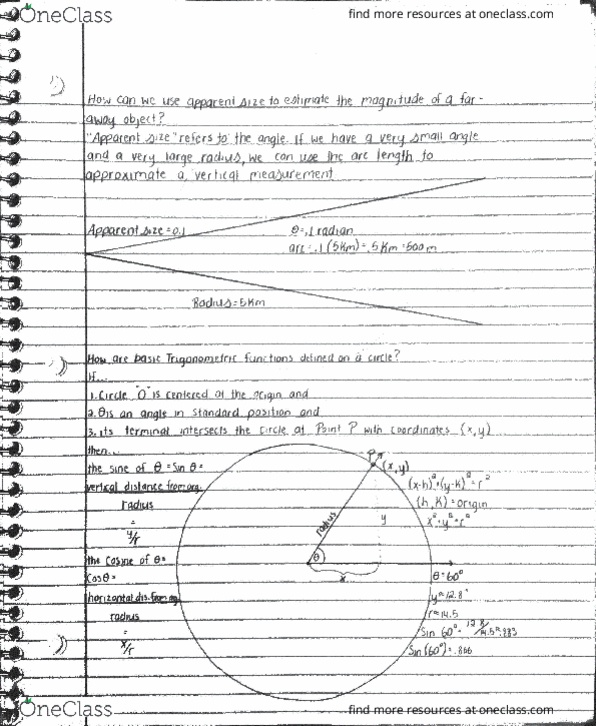 OneClass
find more resources at oneclass.com
How can we use apparent size to estimate the magnitude of a far-
away object?
"Apparent size" refers to the angle. If we have a very small angle
and a very large radius, we can use the arc length to
approximate a vertical measurement
Apparent size=0.1
θ=.1 radian
arc=.1(5Km)=.5Km=500m
Radius=5Km
How are basic Trigonometric functions defined on a circle?
If...
1. Circle "O" is centered at the origin and
2. θ is an angle in standard position and
3. its terminal intersects the circle at Point P with coordinates (x,y)
then...
the sine of θ=Sin θ=
vertical distance from org.
radius
=
y/r
the cosine of θ=
Cosθ=
horizontal dis. from org
radius
=
x/r
P
(x,y)
radius
y
θ
x
(x-h)²+(y-k)²=r²
(h,k)=origin
x²+y²=r²
θ=60°
y=12.8
r=14.5
Sin 60°= 12.8/14.5=.883
Sin(60°)=.866
OneClass
find more resources at oneclass.com